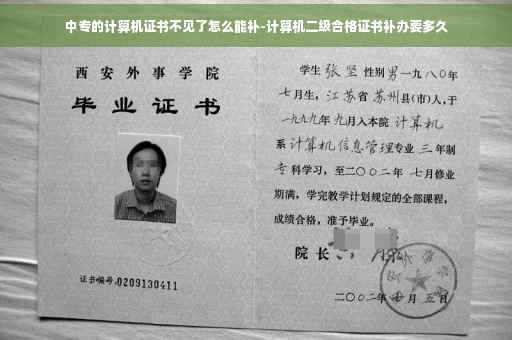 中专的计算机证书不见了怎么能补-计算机二级合格证书补办要多久
西安外事学院
毕业证书
证书编号:0209130411
学生 张坚 性别 男 一九八〇年
七月生，江苏省 苏州县(市)人，于
一九九九年 九月入本院 计算机
系 计算机信息管理专业 三 年制
专科学习，至二〇〇二年 七月修业
期满，学完教学计划规定的全部课程，
成绩合格，准予毕业。
院长
二〇〇二年 月 五日